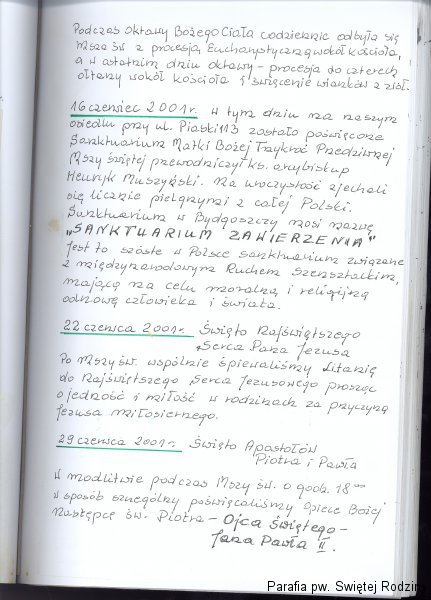 Podczas Oktawy Bożego Ciała codziennie odbyła się
Msza św. z procesją Eucharystyczną wokół kościoła,
a w ostatnim dniu oktawy - procesja do czterech
ołtarzy wokół kościoła i święcenie wianków z ziół.
16 czerwiec 2001r. w tym dniu na naszym
osiedlu przy ul. Piaski 13 zostało poświęcone
Sanktuarium Matki Bożej Trzykroć Przedziwnej
Mszy świętej przewodniczył ks. arcybiskup
Henryk Muszyński. Na uroczystość zjechali
się licznie pielgrzymi z całej Polski.
Sanktuarium w Bydgoszczy nosi nazwę
„SANKTUARIUM ZAWIERZENIA"
Jest to szóste w Polsce sanktuarium związane
z międzynarodowym Ruchem Szensztackim,
mającą na celu moralną i religijną
odnowę człowieka i świata.
22 czerwca 2001r. Święto Najświętszego
Serca Pana Jezusa
Po Mszy św. wspólnie śpiewaliśmy Litanię
do Najświętszego Serca Jezusowego prosząc
o jedność i miłość w rodzinach za przyczyną
Jezusa miłosiernego.
29 czerwca 2001r. Święto Apostołów
Piotra i Pawła
W modlitwie podczas Mszy św. o godz. 18⁰⁰
w sposób szczególny poświęcaliśmy Opiece Bożej
Następcę św. Piotra - Ojca Świętego -
Jana Pawła II.
Parafia pw. Świętej Rodziny